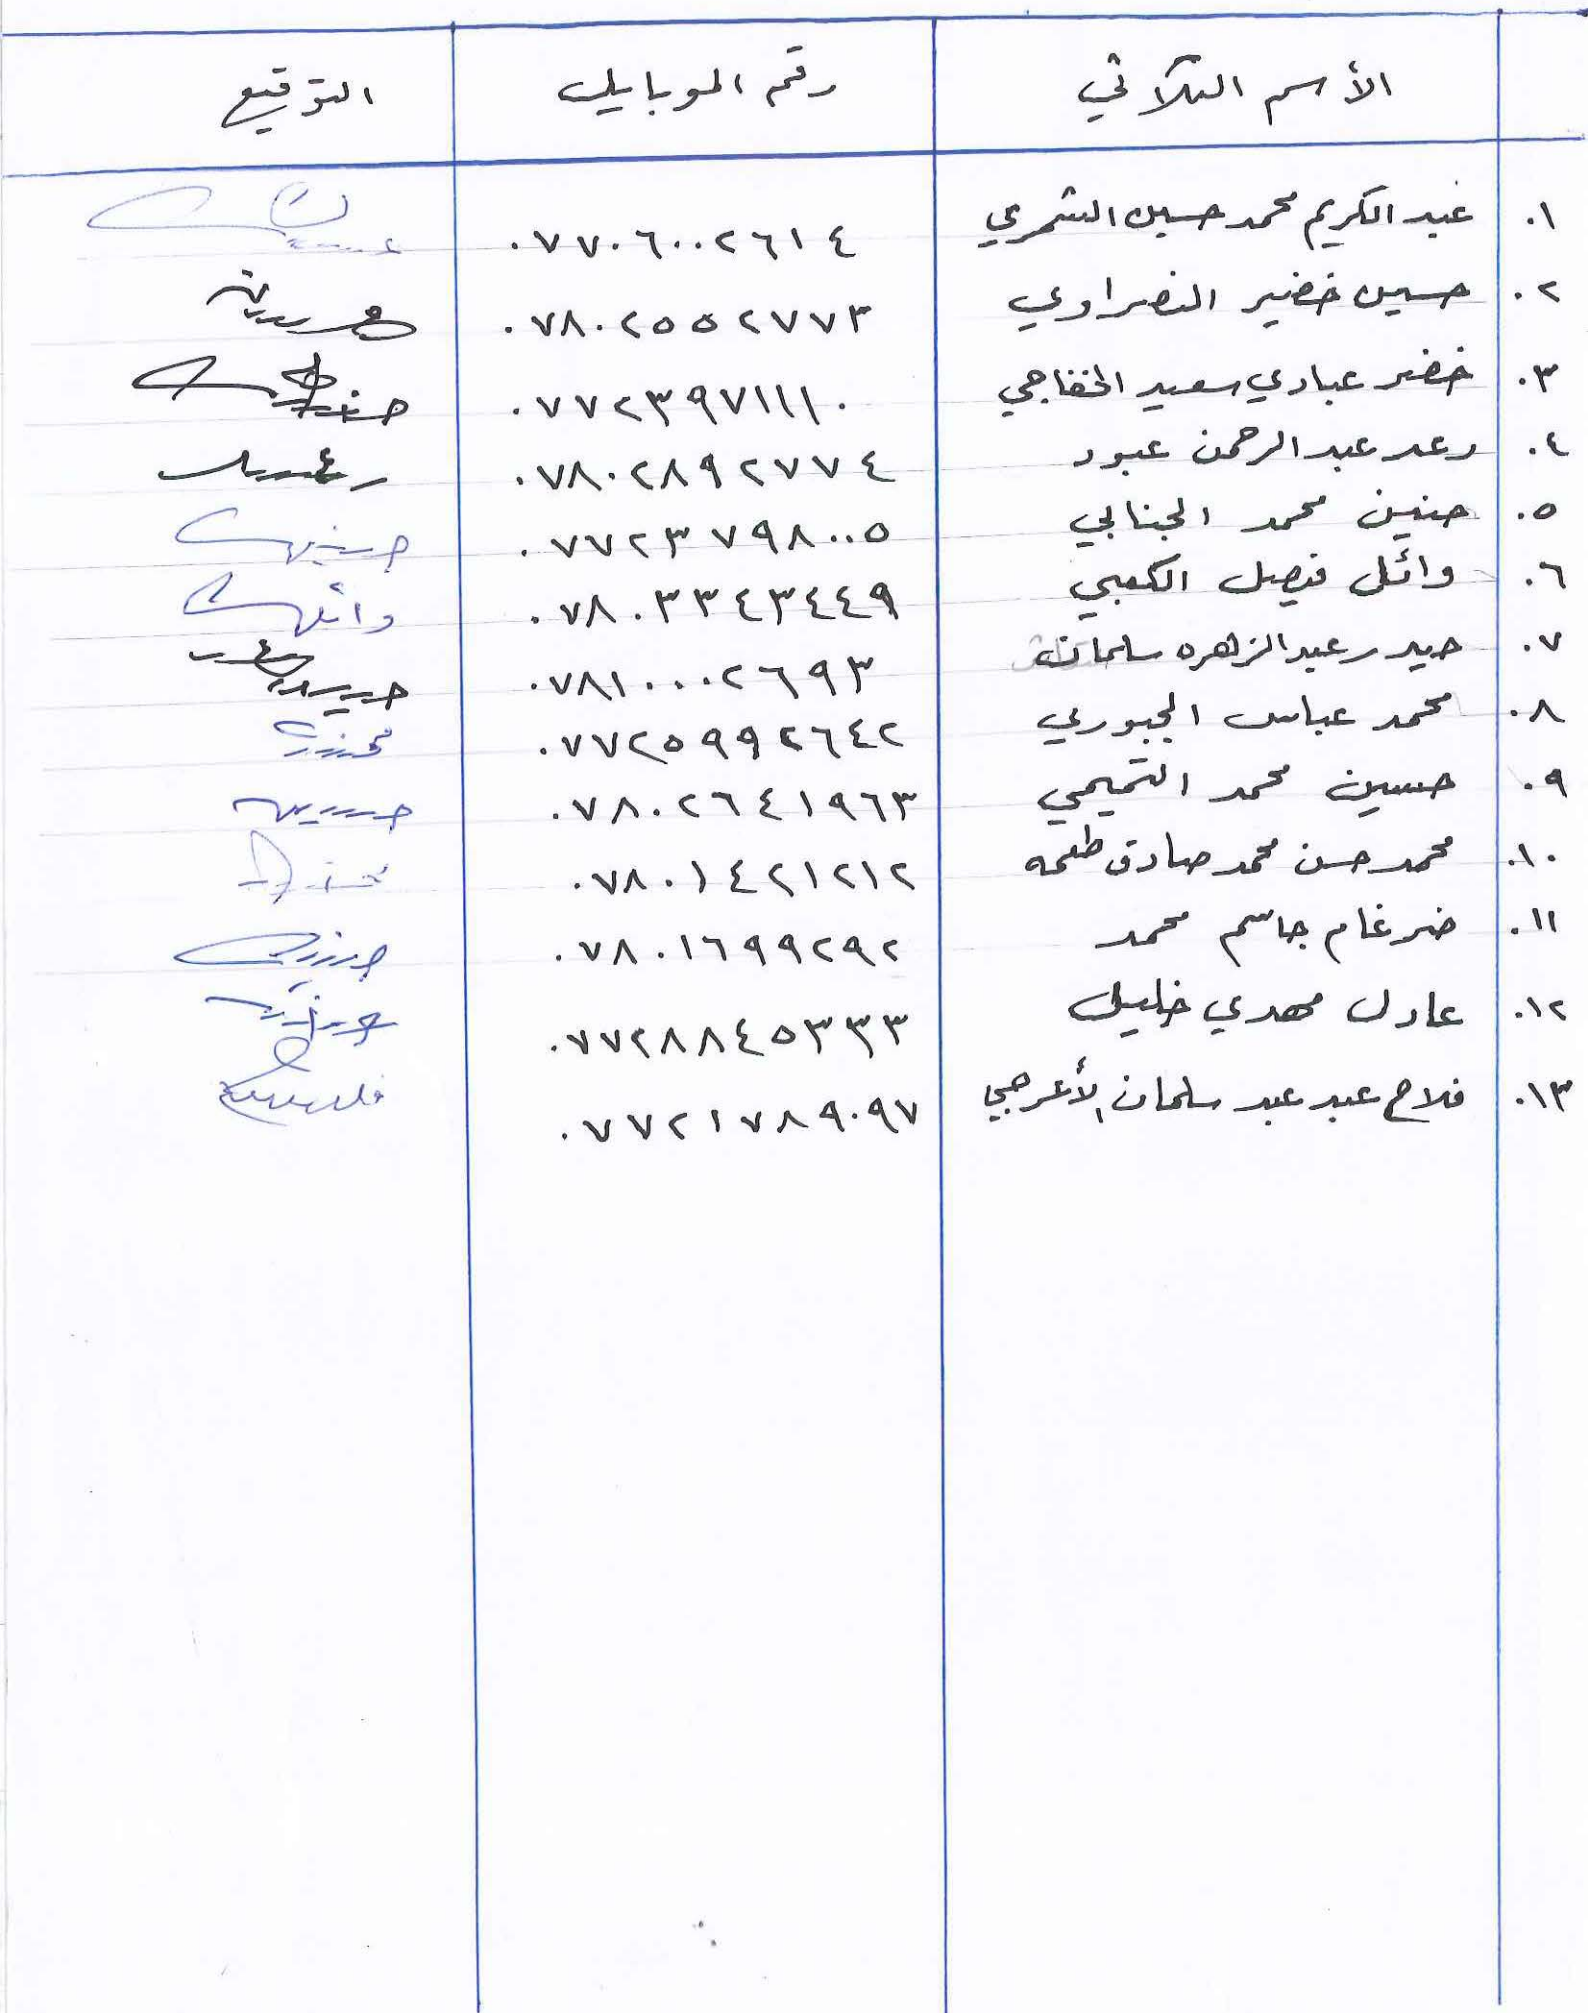 الأسم الثلاثي رقم الموبايل التوقيع
.١ عبد الكريم محمد حسين الشمري ٠٧٧٠٦٠٠٢٦١٤
.٢ حسين خضير النصراوي ٠٧٨٠٢٥٥٢٧٧٣
.٣ خضر عبادي سعيد الخفاجي ٠٧٧٢٣٩٧١١١٠
.٤ رعد عبد الرحمن عبود ٠٧٨٠٢٨٩٢٧٧٤
.٥ حنين محمد الجنابي ٠٧٧٢٣٧٩٨٠٠٥
.٦ وائل فيصل الكعبي ٠٧٨٠٣٣٤٣٤٤٩
.٧ حيدر عبد الزهره سلمان ٠٧٨١٠٠٠٢٦٩٣
.٨ محمد عباس الجبوري ٠٧٧٢٥٩٩٢٦٤٢
.٩ حسين محمد التميمي ٠٧٨٠٢٦٤١٩٦٣
.١٠ محمد حسن محمد صادق طعمه ٠٧٨٠١٤٢١٢١٢
.١١ ضرغام جاسم محمد ٠٧٨٠١٦٩٩٢٩٢
.١٢ عادل مهدي خليل ٠٧٧٢٨٨٤٥٣٣٣
.١٣ فلاح عبد عبد سلمان الأعرجي ٠٧٧٢١٧٨٩٠٩٧